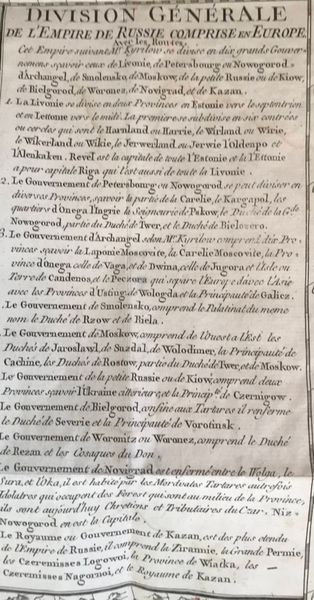 DIVISION GÉNÉRALE
DE L'EMPIRE DE RUSSIE COMPRISE EN EUROPE,
Avec les Routes.
Cet Empire suivant Mr. Kyrilow se divise en dix grands Gouver-
nemens sçavoir ceux de Livonie, de Petersbourg ou Nowogorod
d'Archangel, de Smolensko, de Moskow, de la petite Russie ou de Kiow,
de Bielgorod, de Woronez, de Novigrad, et de Kazan.
1. La Livonie se divise en deux Provinces en Estonie vers le septentrion
et en Lettonie vers le midi. La premiere se subdivise en six contrées
ou cercles qui sont le Harnland ou Harrie, le Wirland ou Wirie,
le Wikerland ou Wikie, le Jerwerland ou Jerwie l'Oldenpo et
l'Alenkaken. Revel est la capitale de toute l'Estonie et la l'Estonie
a pour capitale Riga qui l'est aussi de toute la Livonie.
2. Le Gouvernement de Petersbourg ou Nowogorod se peut diviser en
diverses Provinces, sçavoir la partie de la Carelie, le Kargapol, les
quartiers d'Onega l'Ingrie la Seigneurie de Pskow, le Duché de la Gde.
Nowogorod, partie du Duché de Twer, et le Duché de Bielozero.
3. Le Gouvernement d'Archangel selon Mr. Kyrilow comprend dix Pro-
vinces sçavoir la Laponie Moscovite, la Carelie Moscovite, la Pro-
vince d'Onega celle de Vaga, et de Dwina, celle de Jugora et l'Isle ou
Terre de Candenos, et le Peczora qui separe l'Europe d'avec l'Asie
avec les Provinces d'Ustiug de Wologda et la Principauté de Galicz.
. Le Gouvernement de Smolensko, comprend le Palatinat du meme
nom le Duché de Rzow et de Biela.
. Le Gouvernement de Moskow, comprend de l'Ouest a l'Est les
Duchés de Jaroslawl, de Suzdal, de Wolodimer, la Principauté de
Cachine, les Duchés de Rostow, partie du Duché de Twer, et de Moskow.
. Le Gouvernement de la petite Russie ou de Kiow, comprend deux
Provinces sçavoir l'Ukraine ulterieure, et la Princip.té de Czernigow.
. Le Gouvernement de Bielgorod, confine aux Tartares il renferme
le Duché de Severie et la Principauté de Vorotinsk.
Le Gouvernement de Woronitz ou Woronez, comprend le Duché
de Rezan et les Cosaques du Don.
Le Gouvernement de Novigrad est enfermé entre le Wolga, le
Sura, et l'Oka, il est habité par les Morduates Tartares autrefois
Idolatres qui occupent des Forest qui sont au milieu de la Province,
ils sont aujourd'huy Chretiens et Tributaires du Czar. Niz-
Nowogorod en est la Capitale.
Le Royaume ou Gouvernement de Kazan, est des plus etendu
de l'Empire de Russie, il comprend la Zirannie, la Grande Permie,
les Czeremisses Logowoi, la Province de Wiatka, les
Czeremisses Nagornoi, et le Royaume de Kazan.